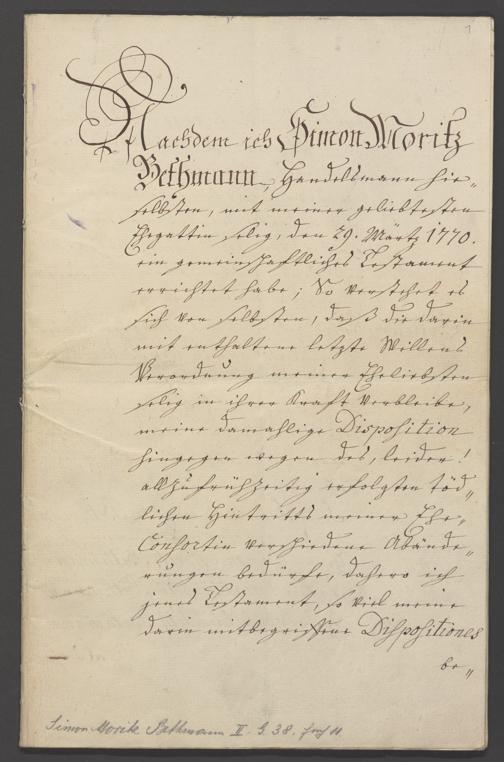 Nachdem ich Simon Moritz
Bethmann, Handelsmann hie„
selbsten, mit meiner geliebtesten
Ehegattin selig, den 29. Märtz 1770.
ein gemeinschaftliches Testament
errichtet habe; So verstehet es
sich von selbsten, daß die darin
mit enthaltene letzte Willens
Verordnung meiner Eheliebsten
selig in ihrer Kraft verbleibe,
meine damahlige Disposition
hingegen wegen des, leider!
allzufrühzeitig erfolgten töd„
lichen Hintritts meiner Ehe„
Consortin verschiedene Abände„
rungen bedürfe, dahero ich
jenes Testament, so viel meine
darin mitbegriffene Dispositiones
be„
Simon Moritz Bethmann II. G. 38.